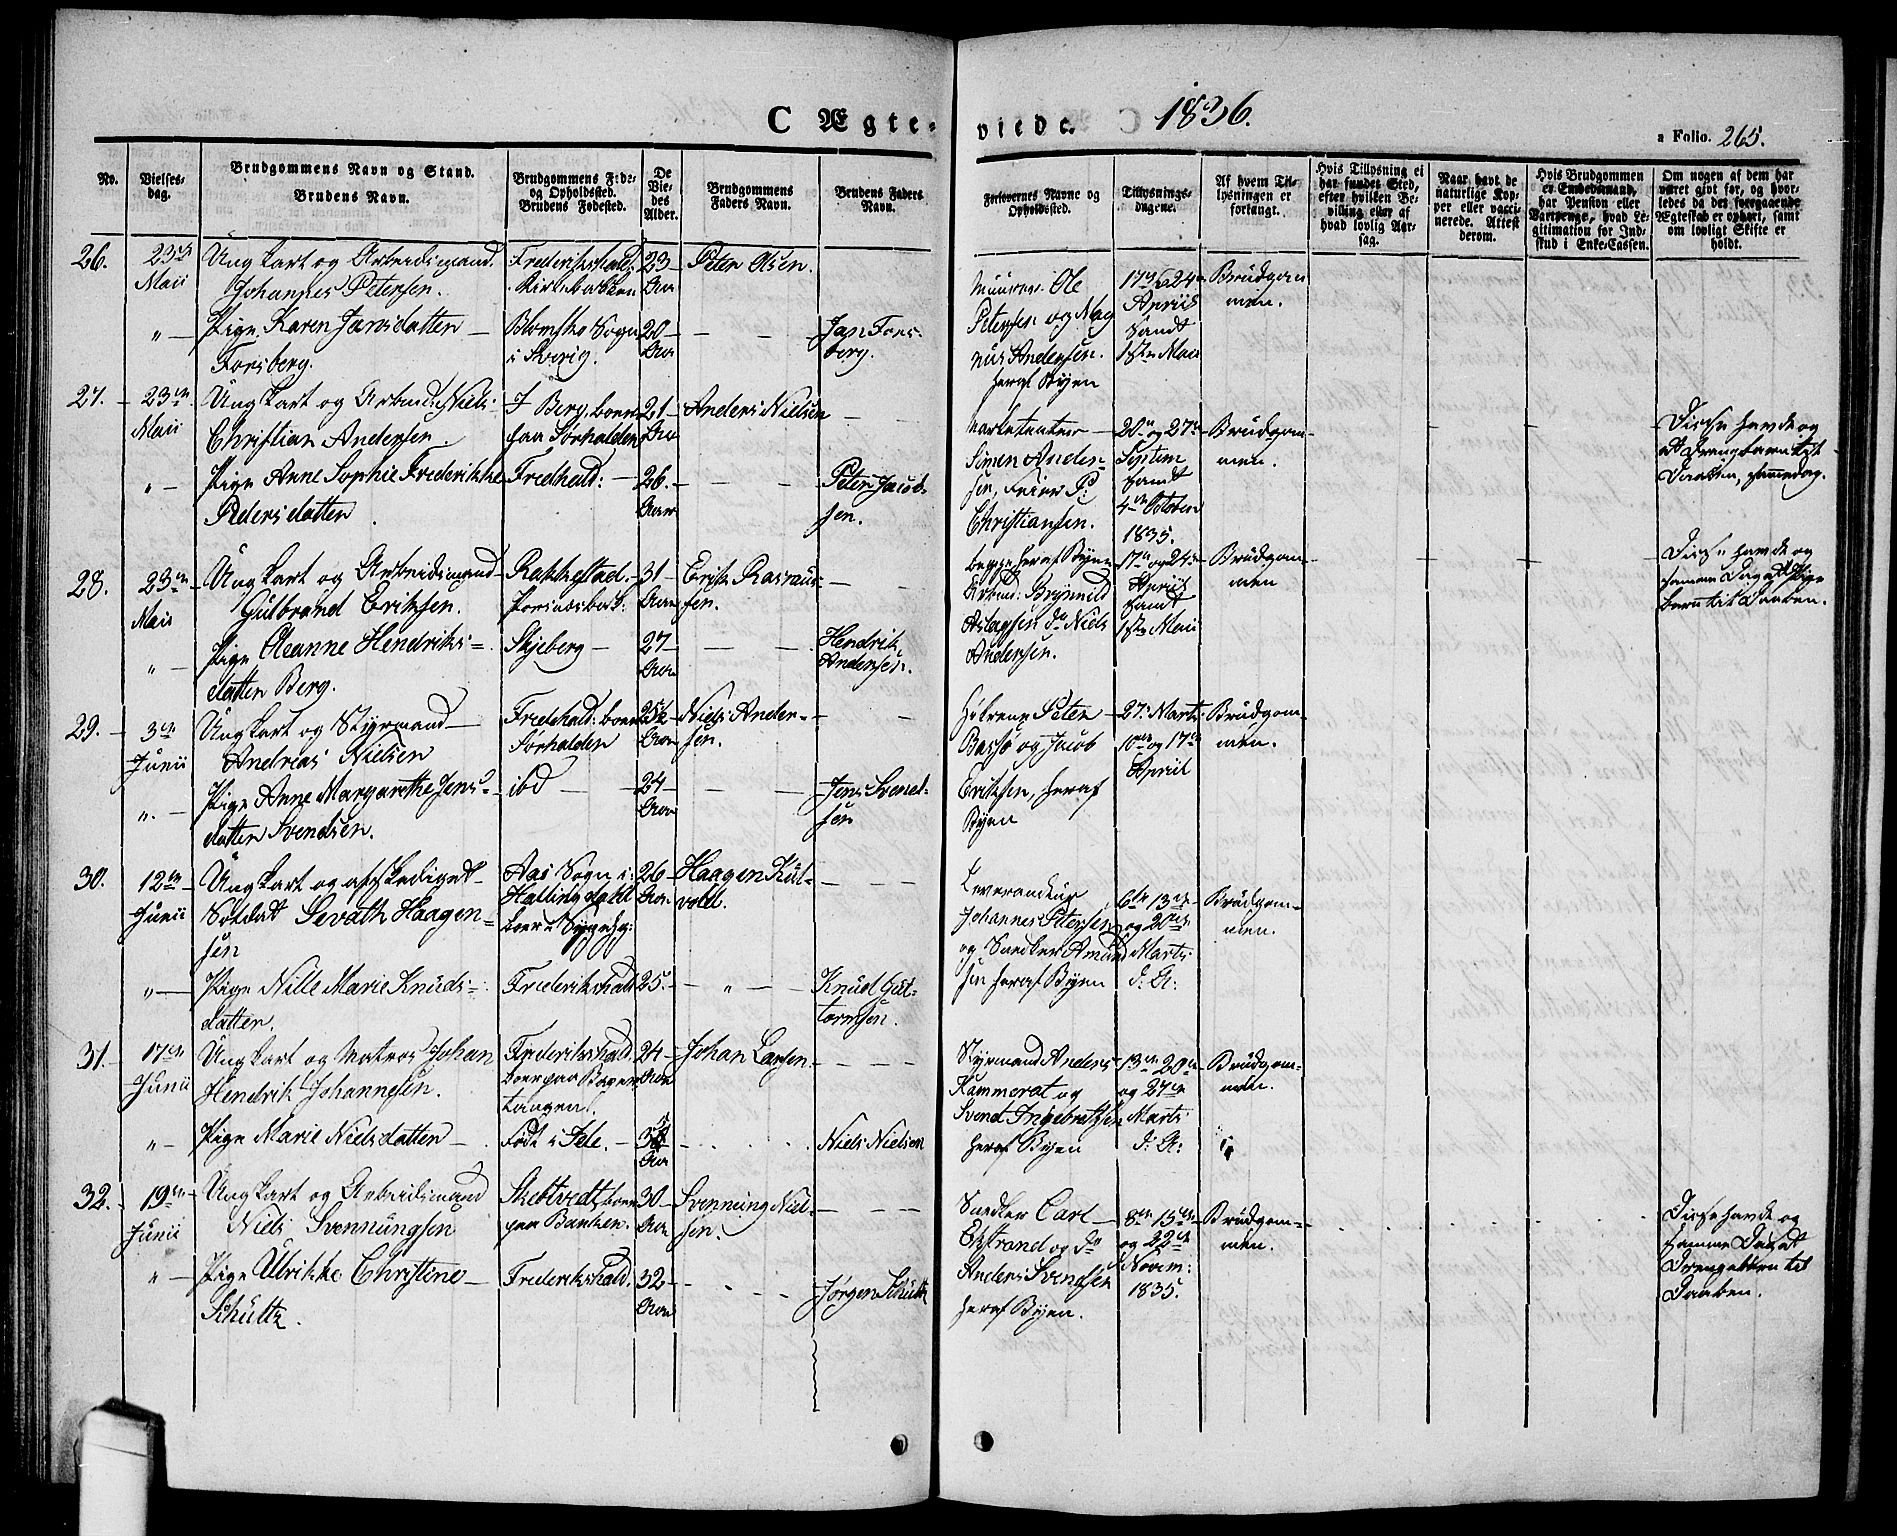 C Ægte-
viede.
1836.
a Folio. 265.
No.
Vielses-
dag.
Brudgommens Navn og Stand.
Brudens Navn.
Brudgommens Føde-
og Opholdssted.
Brudens Fødested.
De
Vie-
des
Alder.
Brudgommens
Faders Navn.
Brudens Faders
Navn.
Forlovernes Navne og
Opholdssted.
Tillysnings-
dagene.
Af hvem Til-
lysningen er
forlangt.
Hvis Tillysning ei
har fundet Sted,
efter hvilken Be-
villing eller af
hvad lovlig Aar-
sag.
Naar havt de
naturlige Kop-
per eller vacci-
nerede. Attest
derom.
Hvis Brudgommen
er Embedsmand,
har Pension eller
Vartpenge, hvad Le-
gitimation for Ind-
skud i Enke-Cassen.
Om nogen af dem har
været givt før, og hvor-
ledes da det foregaaende
Ægteskab er ophørt, samt
om lovligt Skifte er
holdt.
26.
23de
Maii
Ungkarl og Arbeidsmand
Johannes Petersen.
Frederikshald:
23
Aar
Peter Olsen.
Muurer Ole
Petersen og Mag
nus Andersen.
heraf Byen
17de 24de
April
samt
1ste Maii
Brudgom
men.
" Pige Karen Jansdatter
Forsberg.
Sogn
i Sverig.
20
Aar
Jan Fors-
berg.
27.
23de
Maii
Ungkarl og Arbmd: Niels
Christian Andersen.
I Berg, boer
paa Sørhalden
21
Aar
Anders Nielsen
Simen Ander-
sen, P:
Christiansen.
begge heraf Byen
20de og 27de
Septem
samt
4de October
1835.
Brudgom-
men.
Disse havde og
et Drengebarn til
Daaben, samme dag.
" Pige Anne Sophie Frederikke
Pedersdatter
Fredhald:
26.
Aar
Peter Jacob-
sen.
28.
23de
Maii
Ungkarl og Arbeidsmand
Gulbrand Eriksen.
Rakkestad.
31
Aar
Erik Rasmus-
sen.
Arbmd: Brynild
Aslagsen do Niels
Andersen.
17de og 24de
April
samt
1ste Maii
Brudgom-
men
Disse havde og
samme Dag et Pige
barn til Daaben.
" Pige Oleanne Hendriks-
datter Berg.
Skjeberg
27
Aar
Hendrik
Andersen.
29.
3die
Junii
Ungkarl og Styrmand
Andreas Nielsen
Fredrhald: boer
Sørhalden
25½
Aar
Niels Ander-
sen.
Peter
Bassø og Jacob
Eriksen, heraf
Byen
27de Marts
10de og 17de
April
Brudgom-
men.
" Pige Anne Margarethe Jens-
datter Svendsen.
ibd
24
Aar
Jens Svend-
sen
30.
12te
Junii
Ungkarl og afskediget
Soldat Sevath Haagen-
sen
Aas Sogn i
Hallingdahl
boer
26
Aar
Haagen Kul-
vold.
Leverandeur
Johannes Petersen
og Snedker Amund
sen heraf Byen
6te 13de
og 20de
Marts
d: A:
Brudgom-
men.
" Pige Nille Marie Knuds-
datter.
Frederikshald
25.
Knud Gut-
tormsen.
31.
17de
Junii
Ungkarl og Matros Johan
Hendrik Johannesen.
Frederikshald.
boer paa
tangen.
24
Aar
Johan Larsen
Styrmand Anders
Kammerat og
Svend Ingebretsen
heraf Byen
13de 20de
og 27de
Marts
d: A:
Brudgom-
men.
" Pige Marie Nielsdatter
Født i
Aar
Niels Nielsen
32.
19de
Junii
Ungkarl og Arbeidsmand
Niels Svennungsen
boer
paa Banken.
30
Aar
Svennung Niel-
sen.
Snedker Carl
Ekstrand og do
Anders Svendsen
heraf Byen.
8de 15de
og 22de
Novem:
1835.
Brudgom-
men.
Disse havde og
samme Dag et
Drengebarn til
Daaben.
" Pige Ulrikke Christine
Schultz.
Frederikshald.
32
Aar
Jørgen Schultz